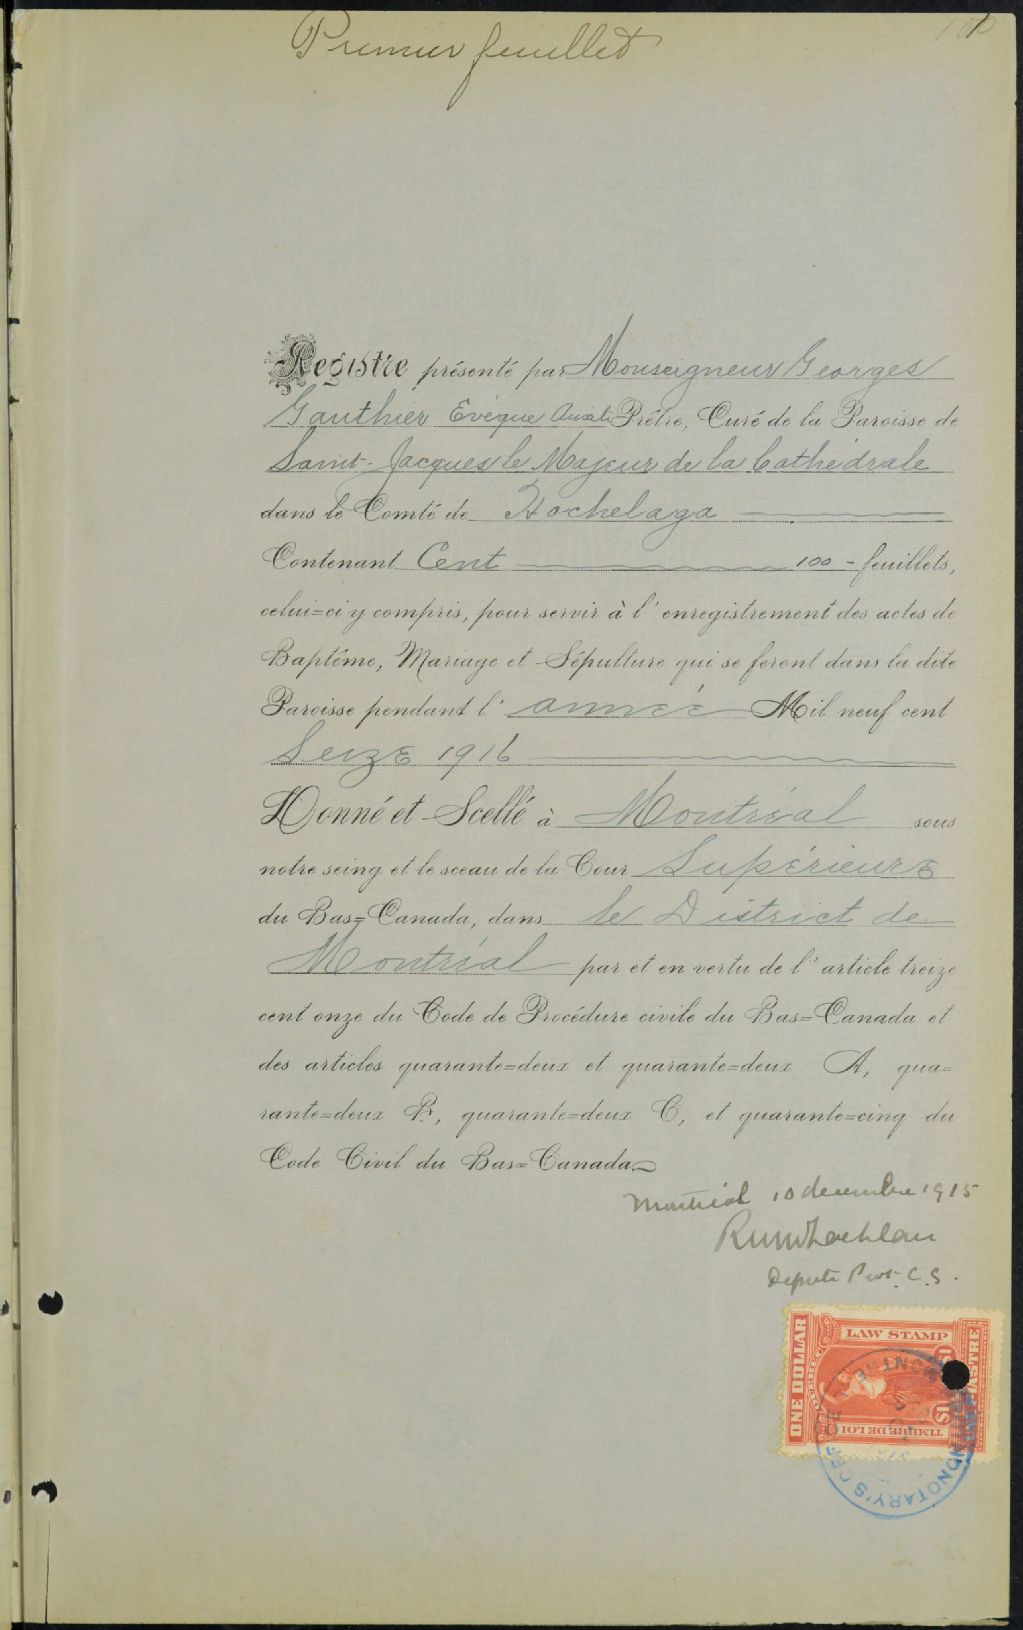 Premier feuillet
Registre présenté par Monseigneur Georges
Gauthier Evêque Auxil. Prêtre, Curé de la Paroisse de
Saint-Jacques le Majeur de la Cathédrale
dans le Comté de Hochelaga
Contenant Cent 100 - feuillets,
celui=ci y compris, pour servir à l'enregistrement des actes de
Baptême, Mariage et Sépulture qui se feront dans la dite
Paroisse pendant l'année Mil neuf cent
Seize 1916
Donné et Scellé à Montréal sous
notre seing et le sceau de la Cour Supérieure
du Bas=Canada, dans le District de
Montréal par et en vertu de l'article treize
cent onze du Code de Procédure civile du Bas=Canada et
des articles quarante=deux et quarante=deux A, qua=
rante=deux B, quarante=deux C, et quarante=cinq du
Code Civil du Bas=Canada
Montréal 10 decembre 1915
Députe Prot. C. S.
LAW STAMP
ONE DOLLAR
PIASTRE
$1
$1
TIMBRE DE LOI